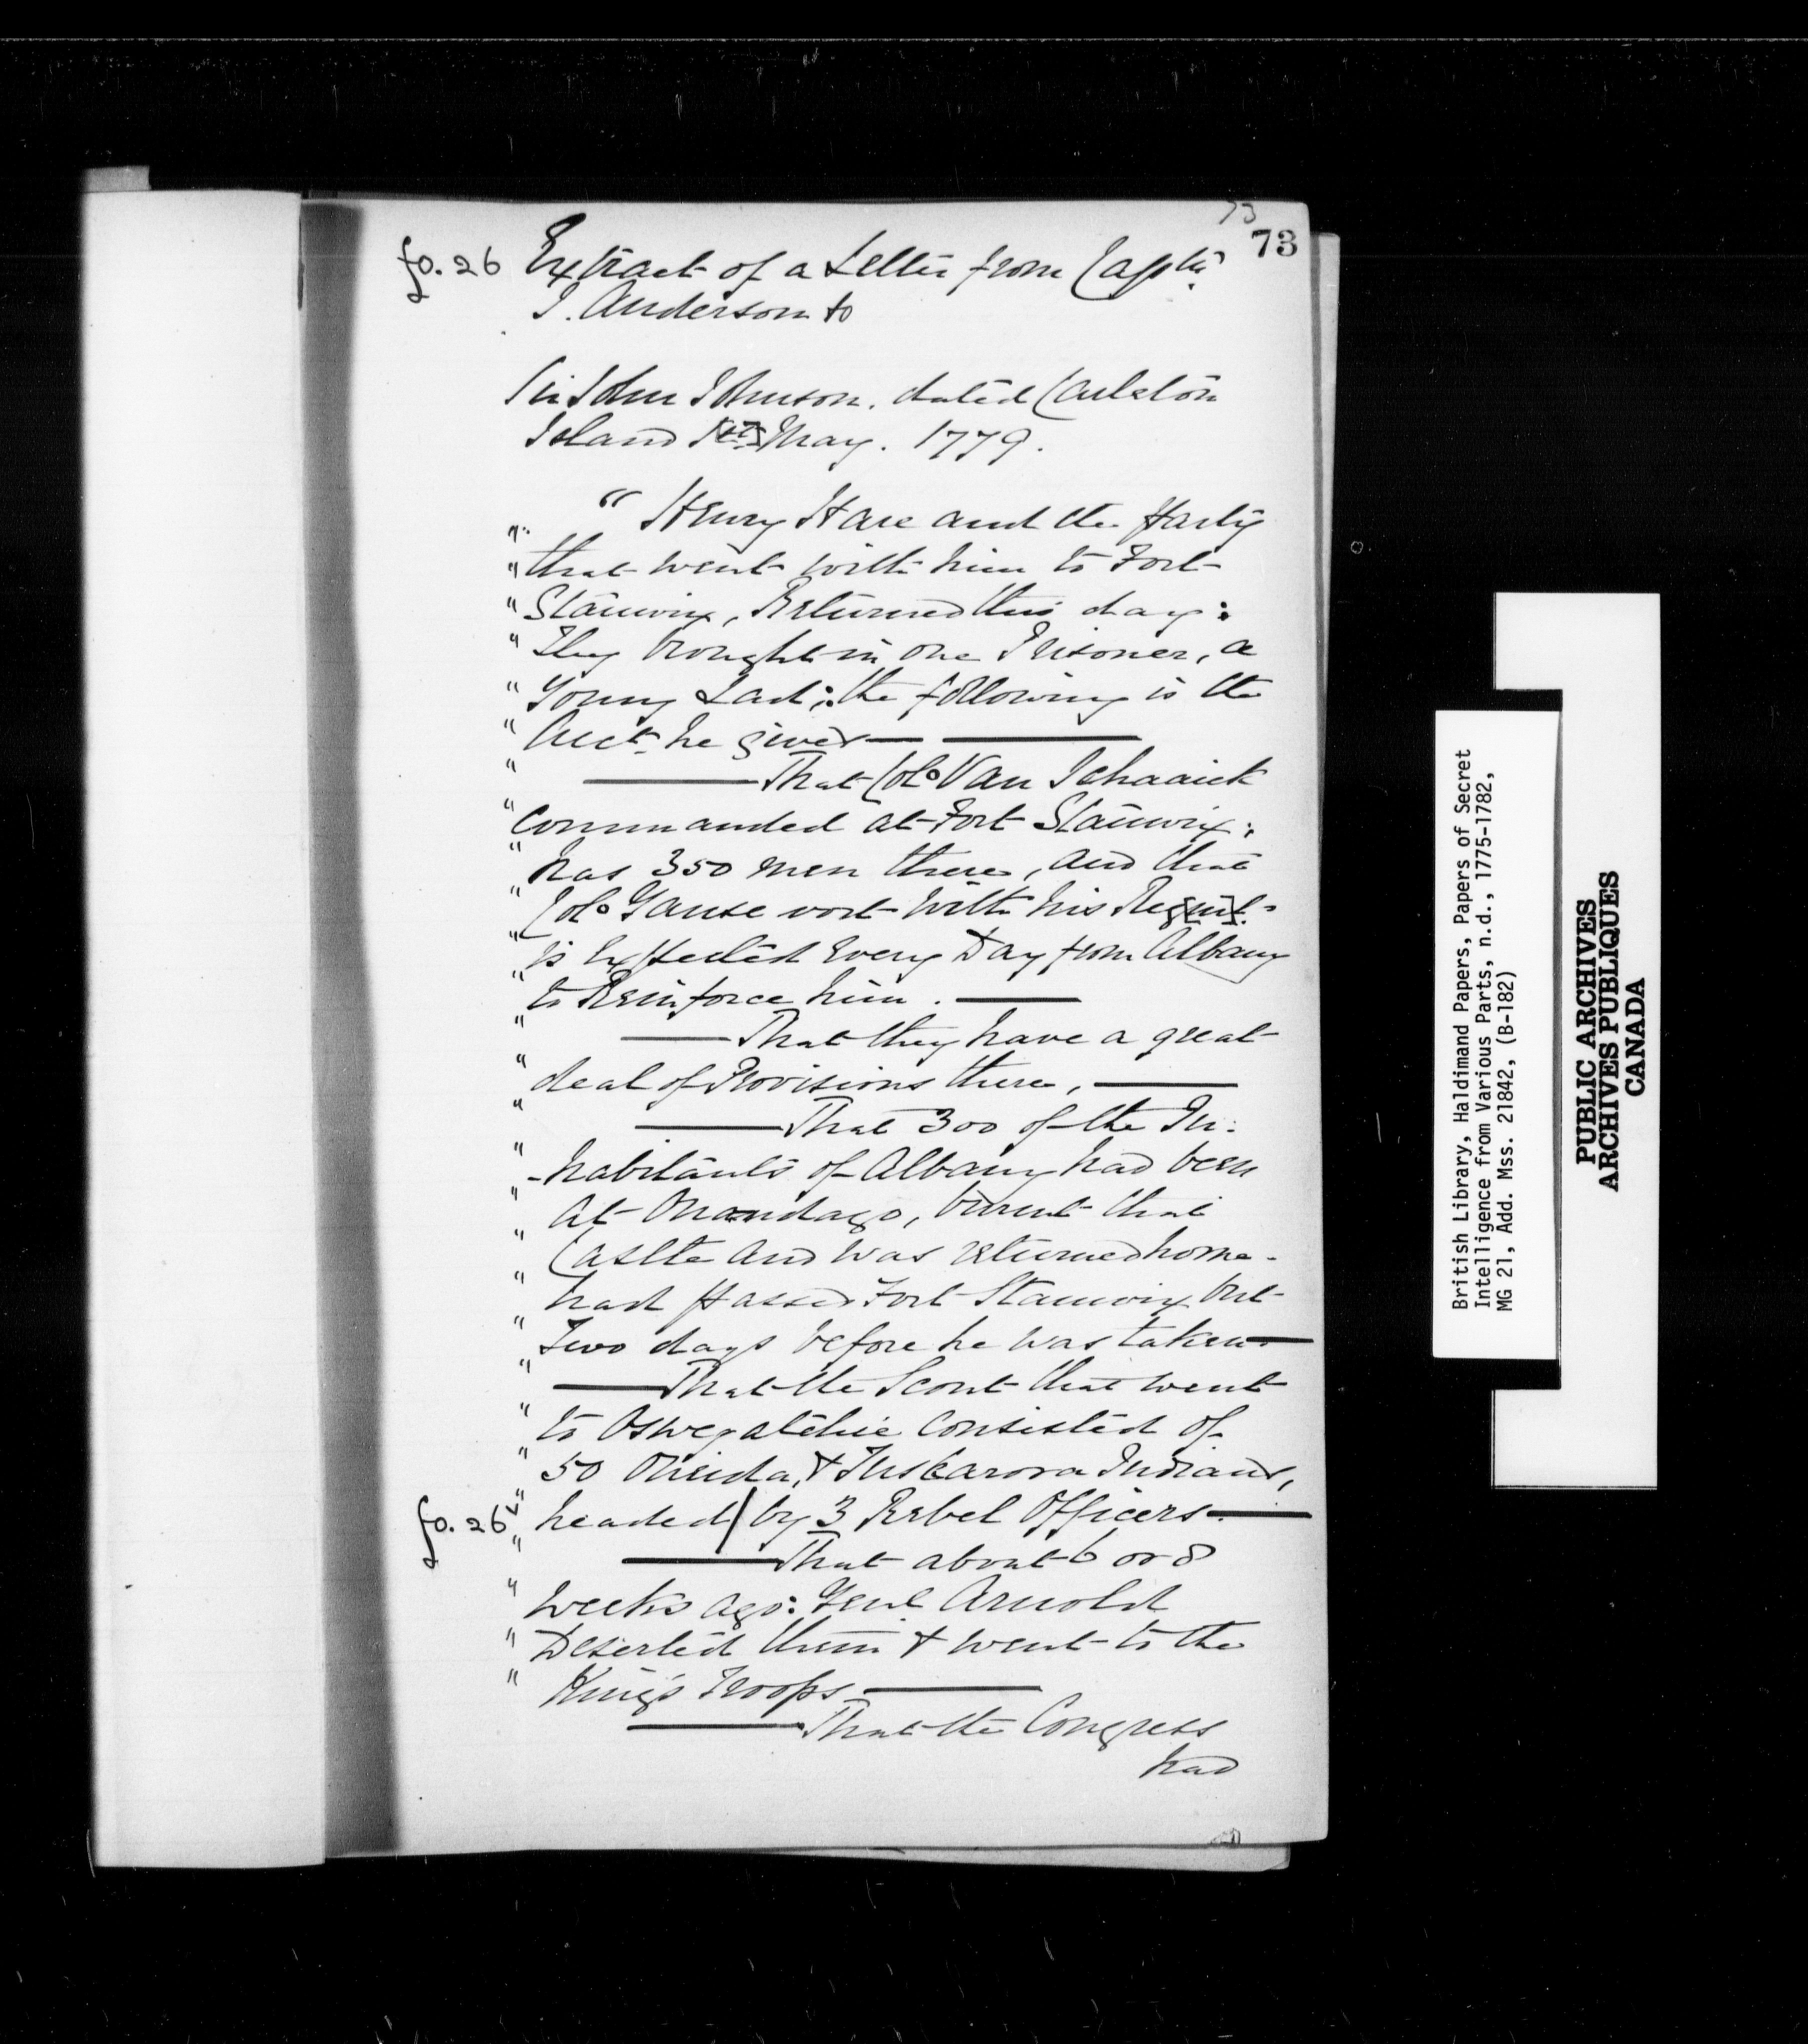 73
73
fo. 26 Extract of a Letter from Captn.
J. Anderson to
Sir John Johnson. dated Carleton
Island May. 1779.
" Henry Hare and the Party
" that went with him to Fort
" Stanwix, Returned this day:
" They brought in one Prisoner, a
" Young Lad; the following is the
" Acct. he gives — —
" — That Colo Van Schaaick
" Commanded at Fort Stanwix;
" has 350 men there, and that
" Colo Ganse vort with his Regmt.
" is Expected Every Day from Albany
" to Reinforce him. —
" — That they have a great
" deal of Provisions there, —
" — That 300 of the In:
" -habitants of Albany had been
" At Onondago, burnt that
" Castle And was returned home -
" had passed Fort Stanwix but
" Two days before he was taken. —
" — That the Scout that went
" to Oswegatchie Consisted of
" 50 Oneida, & Tuskarora Indians,
fo. 26v " headed / by 3 Rebel Officers. —
" — That about 6 or 8
" Weeks ago: Genl Arnold
" Deserted them & went to the
" King's Troops —
— That the Congress
had
British Library, Haldimand Papers, Papers of Secret
Intelligence from Various Parts, n.d., 1775-1782,
MG 21, Add. Mss. 21842, (B-182)
PUBLIC ARCHIVES
ARCHIVES PUBLIQUES
CANADA